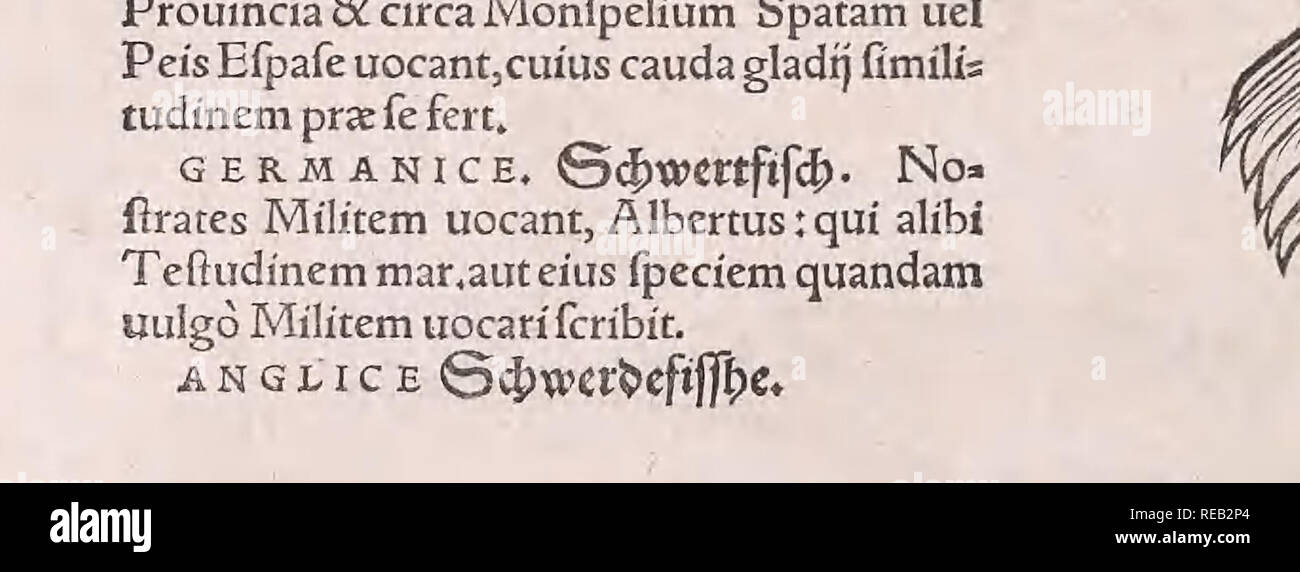 Prouincia & circa Monſpelium Spatam uel
Peis Eſpaſe uocant, cuius cauda gladij ſimili⸗
tudinem præ ſe fert.
GERMANICE. Schwertfiſch. No⸗
ſtrates Militem uocant, Albertus: qui alibi
Teſtudinem mar. aut eius ſpeciem quandam
uulgò Militem uocari ſcribit.
ANGLICE Schwerdefiſſhe.
alamy
a
alamy
a
a
alamy
a
a
alamy
alamy
alamy
Image ID: REB2P4
www.alamy.com